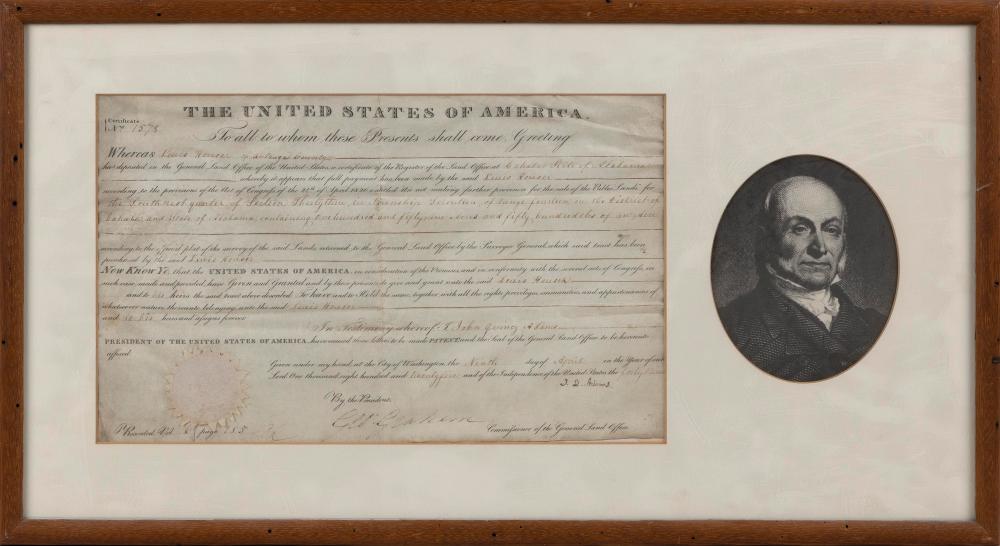 THE UNITED STATES OF AMERICA.
Certificate
No. 1578
To all to whom these Presents shall come, Greeting
Whereas Lewis Houser of Autauga County
has deposited in the General Land Office of the United States, a certificate of the Register of the Land Office at Cahaba State of Alabama
whereby it appears that full payment has been made by the said Lewis Houser
according to the provisions of the Act of Congress of the 24th of April 1820 entitled An act making further provision for the sale of the Public Lands for
the Southwest quarter of Section Thirty in Township Seventeen of range fourteen in the District of
Cahaba and State of Alabama, containing one hundred and fifty nine Acres and fifty hundredths of an Acre
according to the official plat of the survey of the said Lands, returned to the General Land Office by the Surveyor General, which said tract has been
purchased by the said Lewis Houser
Now Know Ye, that the UNITED STATES OF AMERICA, in consideration of the Premises, and in conformity with the several acts of Congress, in
such case, made and provided, have Given and Granted and by these presents do give and grant unto the said Lewis Houser
and to his heirs the said tract above described: To have and to Hold the same, together with all the rights, privileges, immunities, and appurtenances of
whatsoever nature thereunto belonging, unto the said Lewis Houser
and to his heirs and assigns forever.
In Testimony whereof, I John Quincy Adams
PRESIDENT OF THE UNITED STATES OF AMERICA, have caused these letters to be made PATENT, and the Seal of the General Land Office to be hereunto
affixed.
Given under my hand, at the City of Washington, the Ninth day of April in the Year of our
Lord One thousand eight hundred and twenty five and of the Independence of the United States the
J. Q. Adams
By the President.
Geo. Graham
Commissioner of the General Land Office
Recorded Vol. page 185